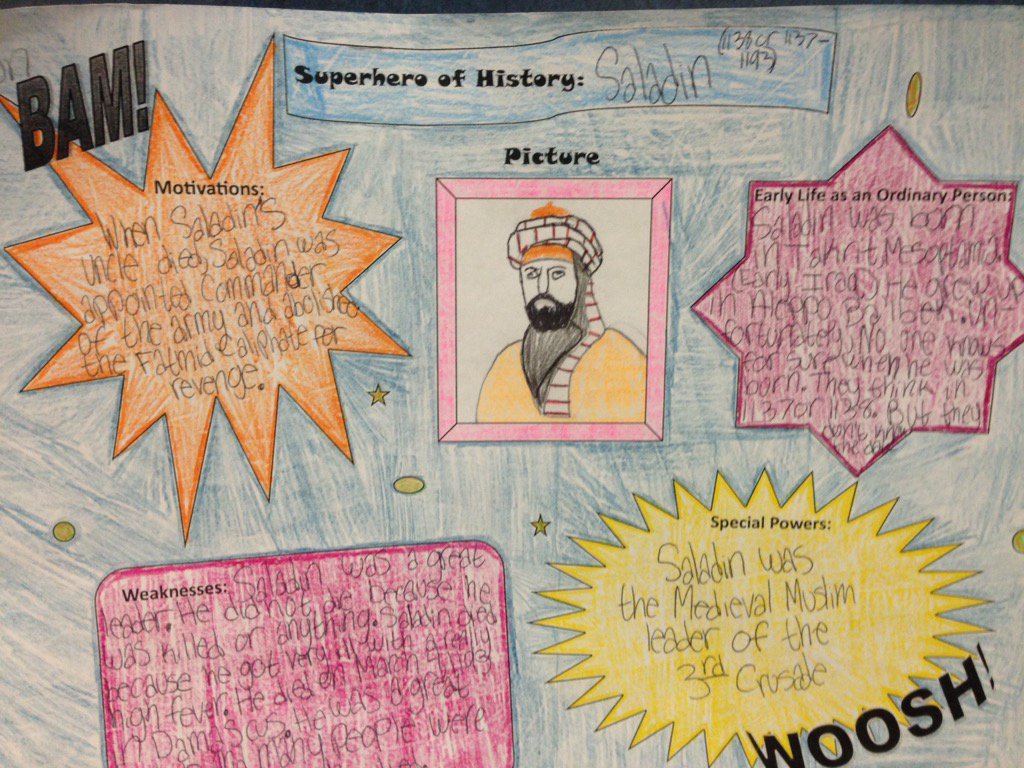 BAM!
Superhero of History: Saladin
(1138 or 1137-
1193)
Picture
Motivations:
When Saladin's
uncle died, Saladin was
appointed Commander
of the army and abolished
the Fatmid Caliphate for
revenge.
Early Life as an Ordinary Person:
Saladin was born
in Takrit, Mesoptamia
(Early Iraq) He grew up
in Aleppo
fortunately, No one knows
for sure when he was
born. They think in
1137 or 1138. But they
don't know
Special Powers:
Saladin was
the Medieval Muslim
leader of the
3rd Crusade
WOOSH!
Weaknesses: Saladin was a great
leader. He did not die because he
was killed or anything. Saladin died
because he got very ill with a really
high fever. He died on March 4
in Damascus. He was a great
many people were